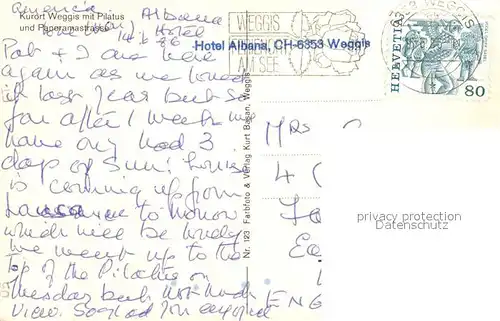 America
Kurort Weggis mit Pilatus
und Panoramastrasse
Albana
Hotel
Hotel Albana, CH-6353 Weggis
WEGGIS
AM SEE
6353 WEGGIS
HELVETIA
80
Pat + I are here
again as we loved
it last year but so
far after 1 week we
have only had 3
days of Sun! Louise
is coming up from
Lausanne to
which will be lovely
We went up to the
top of the Pilatus on
Tuesday but not much
view. So glad you enjoyed
Nr. 123 Farbfoto & Verlag Kurt Basan, Weggis
MRS
4
ENG
privacy protection
Datenschutz